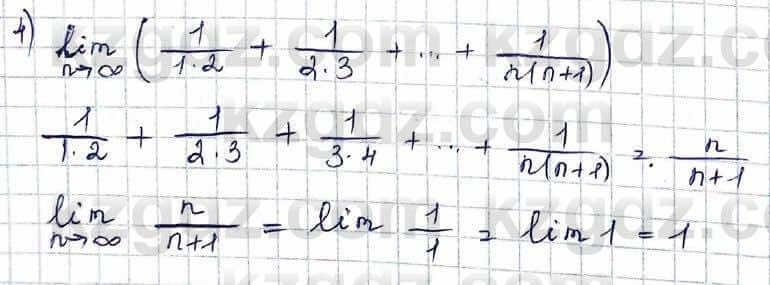 4) lim n→∞ (1/(1·2) + 1/(2·3) + ... + 1/(n(n+1)))
1/(1·2) + 1/(2·3) + 1/(3·4) + ... + 1/(n(n+1)) = n/(n+1)
lim n→∞ n/(n+1) = lim 1/1 = lim 1 = 1